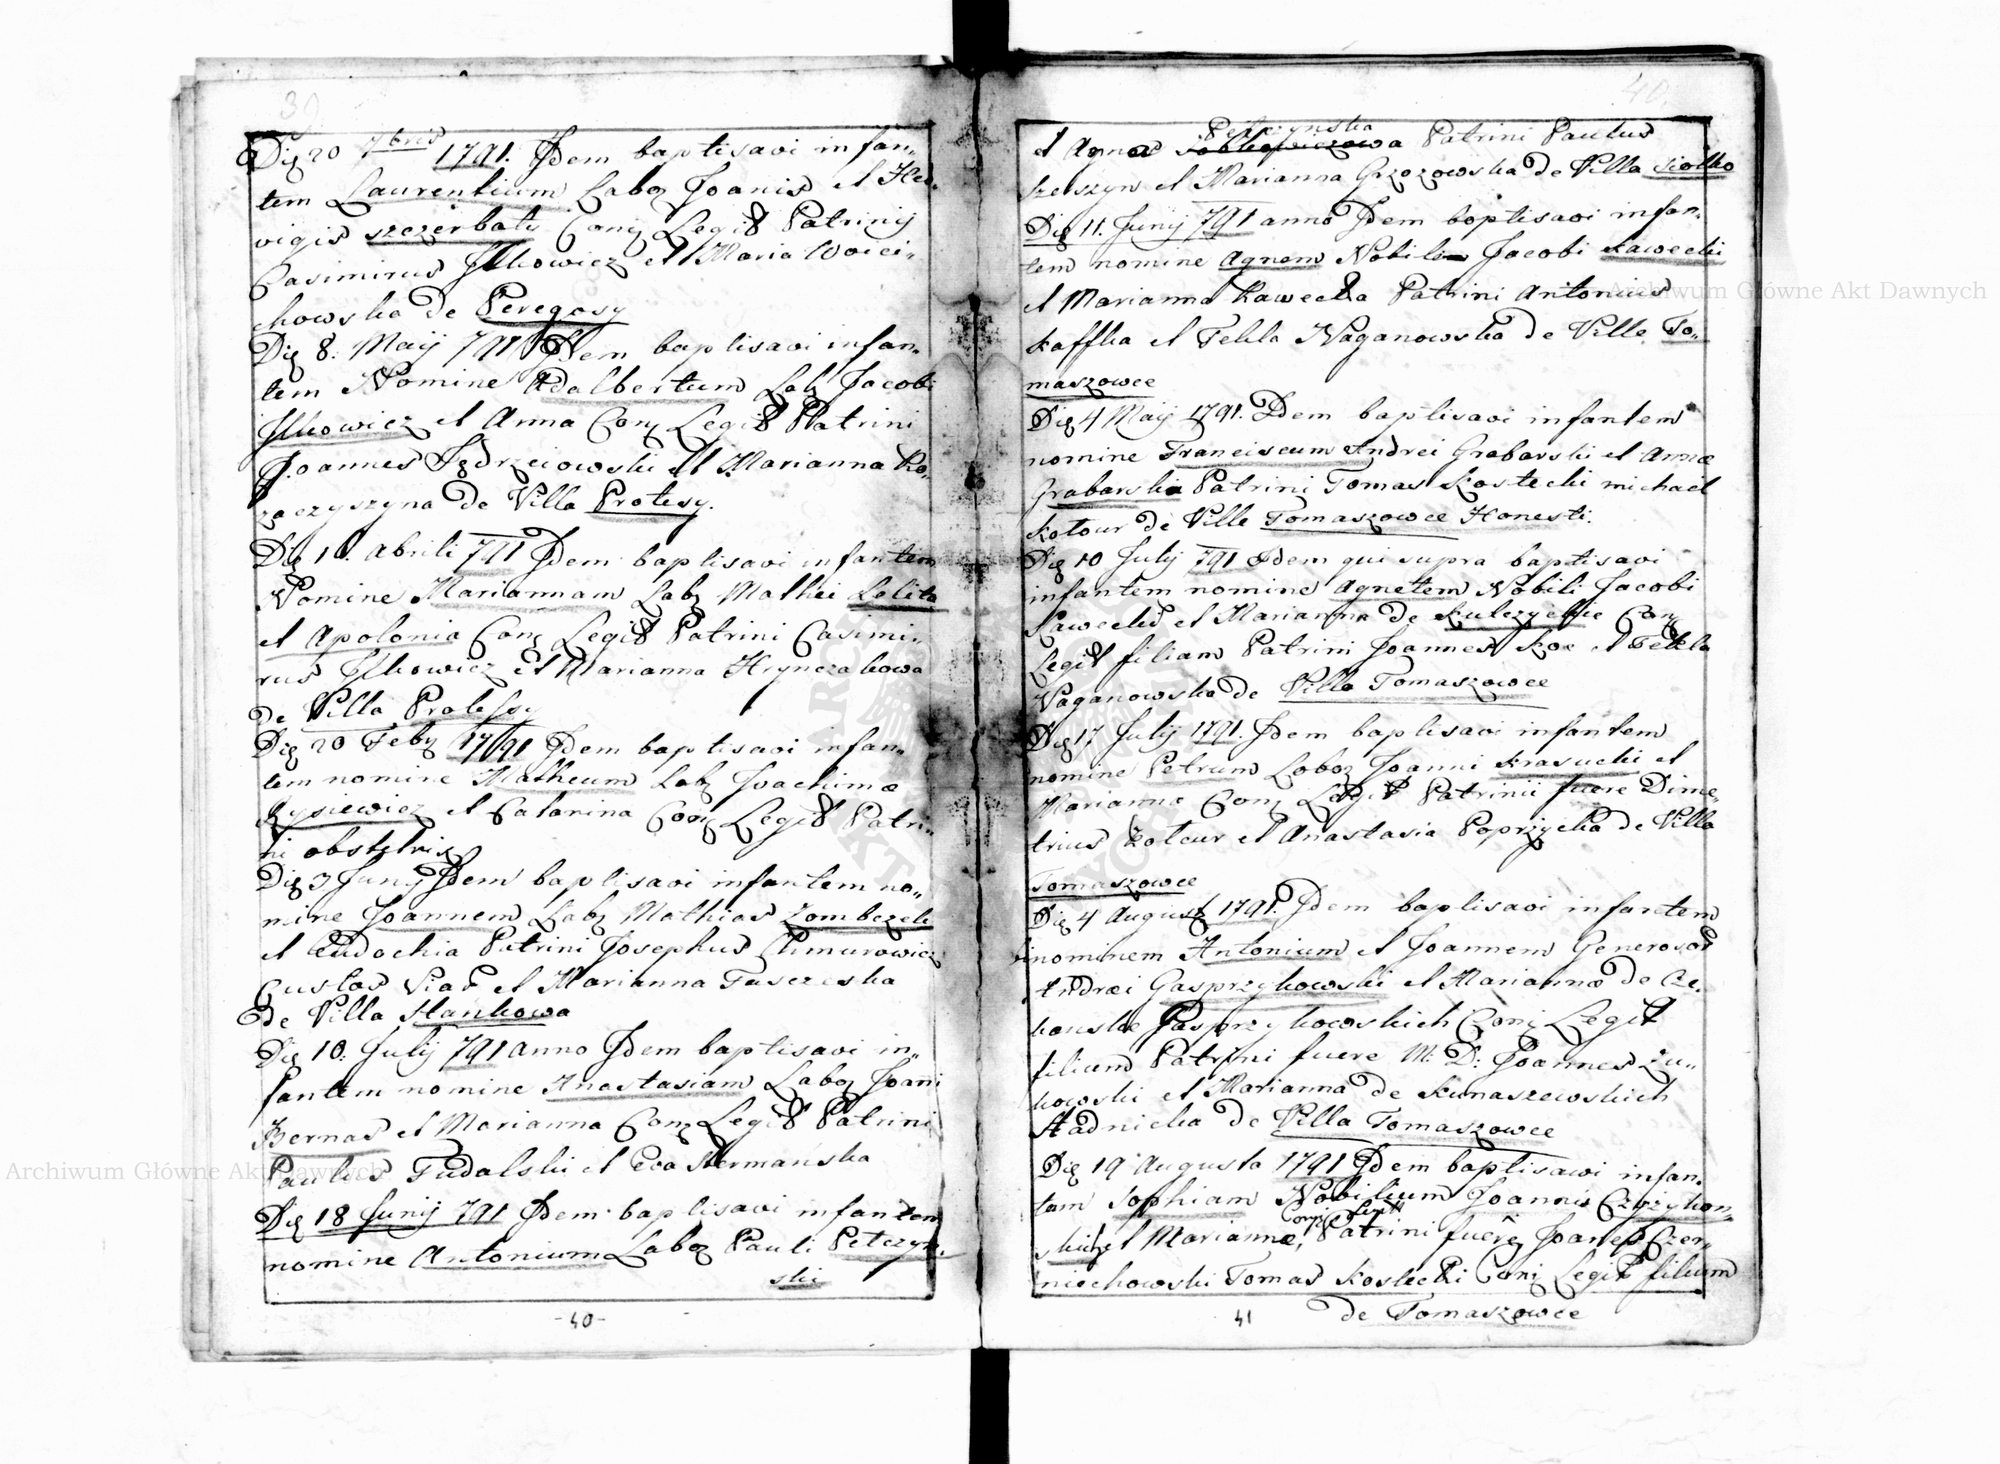 39.
Die 20 7bris 1791. Idem baptisavi infan„
tem Laurentium Laboz Joanis et Hed„
vigis Szczerbaty Conj Legit Patrinij
Casimirus Ilkowicz et Maria Woici„
chowska de Peregosy
Die 8. Maij 791 Idem baptisavi infan„
tem Nomine Adalbertum Labz Jacobi
Ilkowicz et Anna Conj Legit Patrini
Joannes Jędrzeiowski et Marianna Ko„
zaczyszyna de Villa Protesy.
Die 1. Abrili 791 Idem baptisavi infantem
Nomine Mariannam Labz Mathei Lelita
et Apolonia Conj Legit Patrini Casimi„
rus Ilkowicz et Marianna Hrynczakowa
de Villa Protessy
Die 20 Feby 1791 Idem baptisavi infan„
tem nomine Matheum Labz Joachimæ
Rysiewicz et Catarina Conj Legit Patri„
ni obstetrix
Die 3 Junij Idem baptisavi infantem no„
mine Joannem Labz Mathias Zombezele
et Eudochia Patrini Josephus Chmurowicz
Custos et Marianna Tusczeska
de Villa Stankowa
Die 10. July 791 anno Idem baptisavi in„
fantem nomine Anastasiam Laboz Joani
Bernas et Marianna Conj Legit Patrini
Paulus Tudalski et Eva Hermańska
Die 18 Junij 791 Idem baptisavi infantem
nomine Antonium Laboz Pauli Petczyn„
ski
-40-
40.
Petczynska
et Agnes Patrini Paulus
Szerszyn et Marianna Grzozowska de Villa Siolko
Die 11. Junij 791 anno Idem baptisavi infan„
tem nomine Agnem Nobilem Jacobi Kawecki
et Marianna Kawecka Patrini Antonius
Kaffka et Tekla Naganowska de Ville To„
maszowce
Die 4 Maij 1791. Idem baptisavi infantem
nomine Franciscum Andrei Grabarski et Annæ
Grabarska Patrini Tomas Kostecki michael
Kotour de Ville Tomaszowce Honesti.
Die 10 July 791 Idem qui supra baptisavi
infantem nomine Agnetem Nobili Jacobi
Kawecki et Marianna de Kulczyckie Conj
Legit filiam Patrini Joannes Koe et Tekla
Naganowska de Villa Tomaszowce
Die 17 July 1791. Idem baptisavi infantem
nomine Petrum Laboz Joanni Krasucki et
Mariannæ Conj Legit Patrinii fuere Dime„
trius Kotour et Anastasia Poprzycka de Villa
Tomaszowce
Die 4 August 1791. Idem baptisavi infantem
binominem Antonium et Joannem Generosor
Andræi Gasprzykowski et Mariannæ de Cze„
kanske Gasprzykowskich Conj Legit
filium Patrini fuere M: D: Joannes Zu„
kowski et Marianna de Kunaszewskich
Stadnicka de Villa Tomaszowce
Die 19 Augusta 1791 Idem baptisavi infan„
tam Sophiam Nobilium Joannis Czyzykow„
Conj Legit
skich et Mariannæ, Patrini fuere Joanes Czer„
niechowski Tomas Kostecki Conj Legit filium
de Tomaszowce
41
Archiwum Główne Akt Dawnych
Archiwum Główne Akt Dawnych